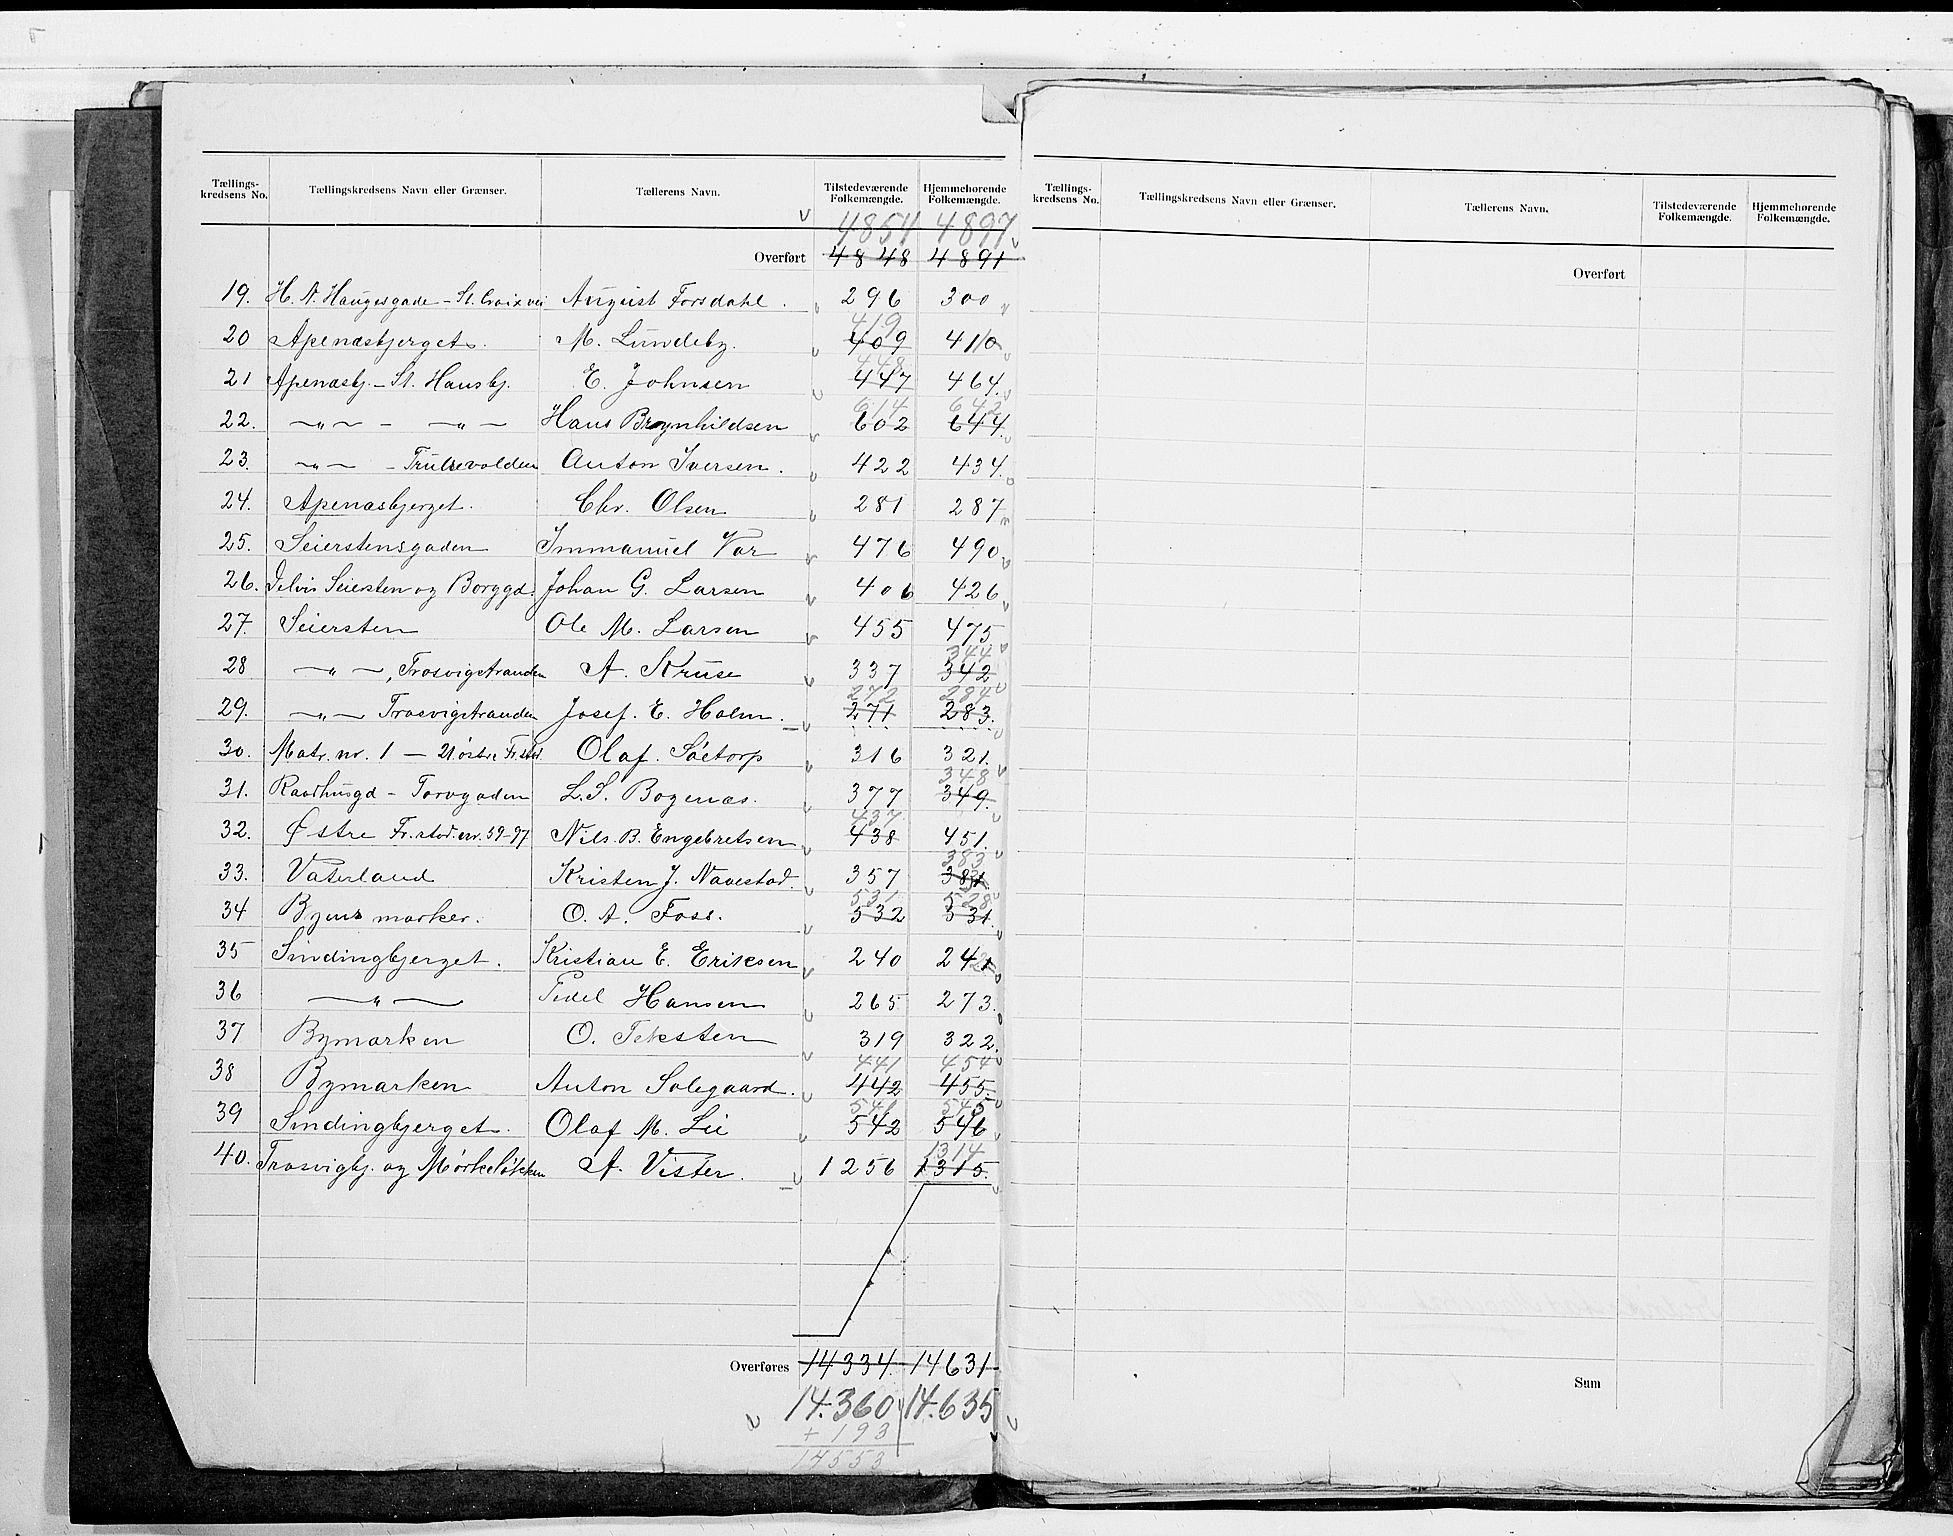 Tællings-kredsens No. Tællingskredsens Navn eller Grænser. Tællerens Navn. Tilstedeværende Folkemængde. Hjemmehørende Folkemængde.
4854 4897
Overført 4848 4891
19. H. N. Haugesgade - St. Croixvei August Forsdahl. 296 300
419
20 Apenæsbjerget. M. Lundeby. 409 410
448
21 Apenæsbj. - St. Hansbj. E. Johnsen 447 464.
614 642
22. —„— - —„— Hans Brynhildsen 602 644.
23. —„— - Trulsevolden Anton Iversen. 422 434.
24. Apenæsbjerget. Chr. Olsen 281 287
25. Seierstensgaden Immanuel Vor 476 490
26. Delvis Seiersten og Borggd. Johan G. Larsen 406 426
27. Seiersten Ole M. Larsen 455 475
344
28 —„—, Trosvigstranden A. Kruse 337 342
272 284
29. —„— Trosvigstranden Josef. E. Holm. 271 283.
30. Matr. nr. 1 — 21 østre Fr.stad. Olaf. Sætorp 316 321.
348
31. Raadhusgd - Torvgaden L. S. Bogenæs. 377 349.
437
32. Østre Fr.stad. nr. 59-97 Nils. B. Engebretsen 438 451.
383
33. Vaterland Kristen J. Navestad. 357 381
531 528
34 Byens marker. O. A. Foss. 532 531.
35 Sindingbjerget. Kristian E. Eriksen 240 241
36 —„— Pedel Hansen 265 273.
37 Bymarken O. Teksten 319 322.
441 454
38 Bymarken Anton Solegaard. 442 455.
541 545
39 Sindingbjerget. Olaf M. Lie 542 546
1314
40. Trosvigbj. og Mørkeløkken A. Vister. 1256 1315.
Overføres 14334. 14631
14.360 14.635
+ 193
14553
Tællings-kredsens No. Tællingskredsens Navn eller Grænser. Tællerens Navn. Tilstedeværende Folkemængde. Hjemmehørende Folkemængde.
Overført
Sum